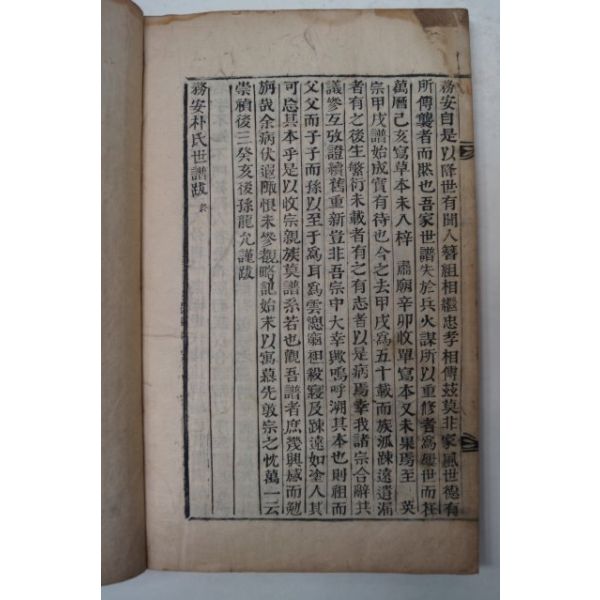 務安自是以降世有聞人簪組相繼忠孝相傳茲莫非家風世德有
所傳襲者而然也吾家世譜失於兵火謀所以重修者爲屢世而在
萬曆己亥寫草本未入梓 肅廟辛卯收單寫本又未果焉至 英
宗甲戌譜始成實有待也今之去甲戌爲五十載而族派踈遠遺漏
者有之後生繁衍未載者有之有志者以是病焉幸我諸宗合辭共
議參互攷證續舊重新豈非吾宗中大幸歟嗚呼溯其本也則祖而
父父而子子而孫以至于爲耳爲雲緦窮袒殺寖及踈遠如塗人其
可忘其本乎是以收宗親族莫譜系若也觀吾譜者庶幾興感而勉
旃哉余病伏遐陬恨未參觀略記始末以寓慕先敦宗之忱萬一云
崇禎後三癸亥後孫龍允謹跋
務安朴氏世譜跋 終